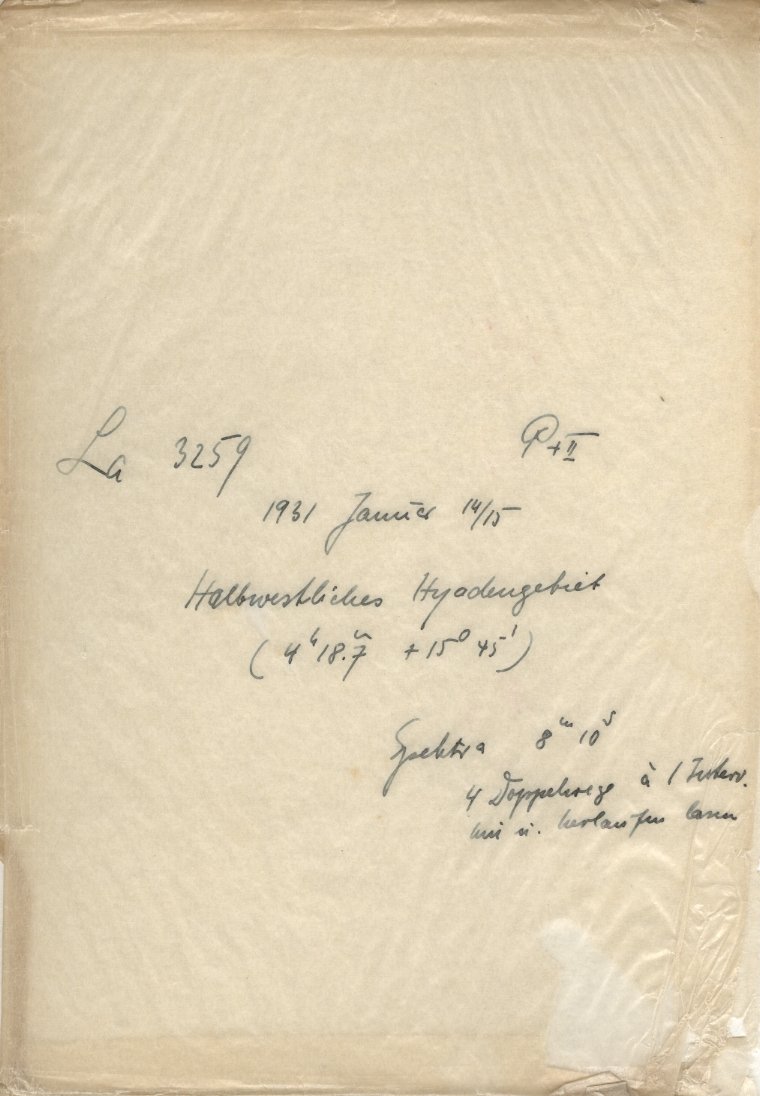 La 3259 P+II
1931 Januar 14/15
Halbwestliches Hyadengebiet
(4h 18.m7 +15° 45')
Spektra 8m 10s
4 Doppelwege à 1 Interv.
hin u. herlaufen lassen